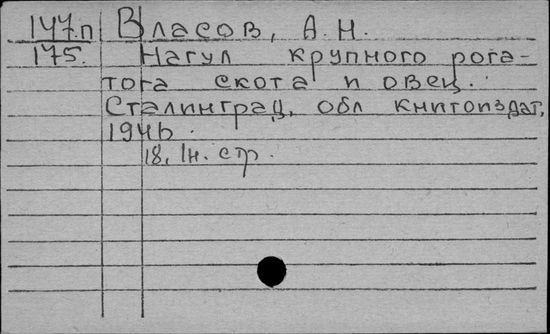 147.п Власов, А.Н.
175. Нагул крупного рога-
того скота и овец.
Сталинград, обл книгоиздат,
1946.
18, 1н. стр.